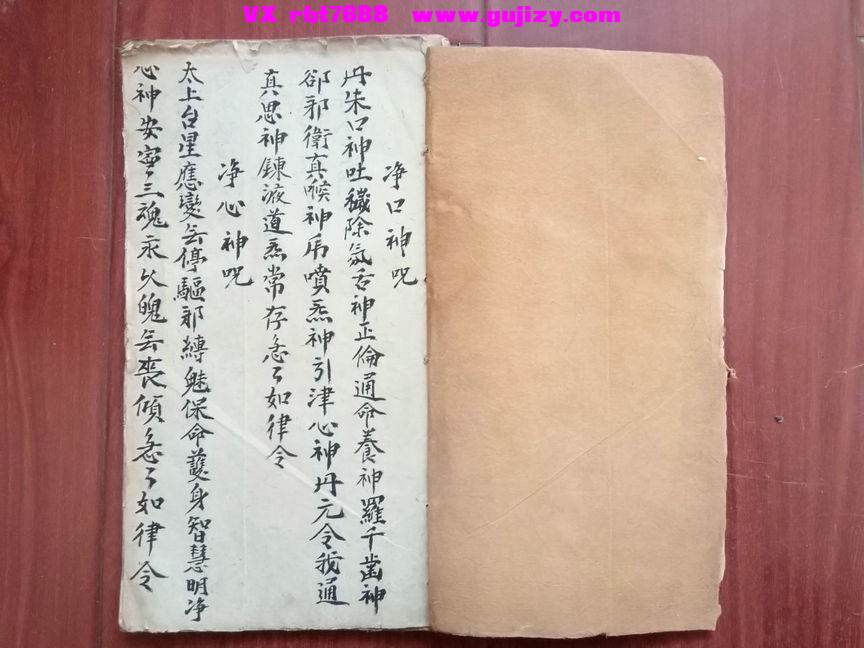 VX rbt7088 www.gujizy.com
净口神咒
丹朱口神吐穢除氛舌神正倫通命養神羅千齒神
卻邪衛真喉神虎噴炁神引津心神丹元令我通
真思神鍊液道炁常存急〻如律令
净心神咒
太上台星應變无停驅邪縛魅保命護身智慧明净
心神安寧三魂永久魄无喪傾急〻如律令